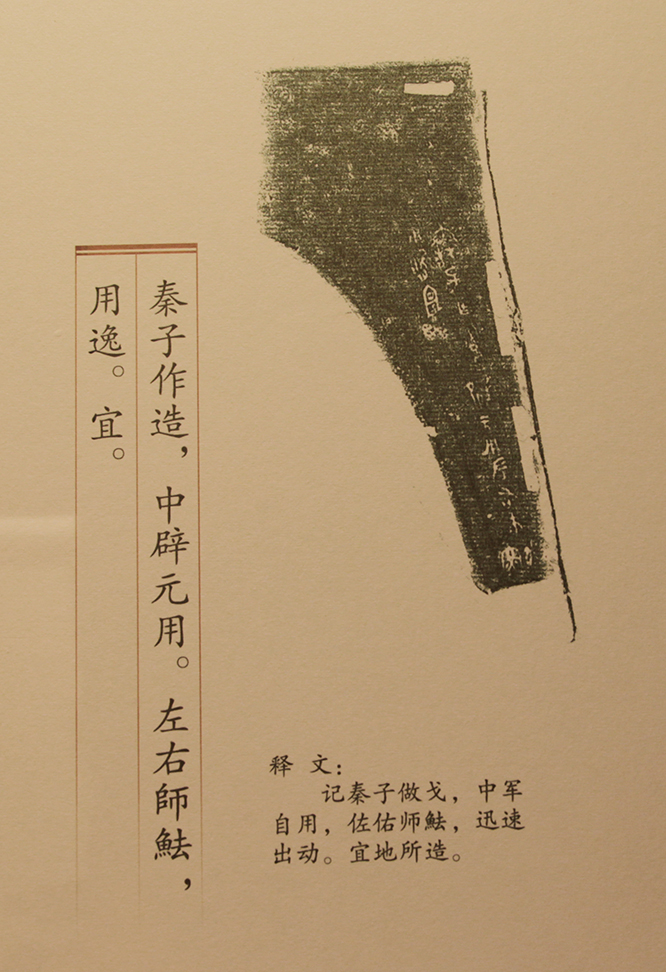 秦子作造，中辟元用。左右師鮭，
用逸。宜。
释 文：
记秦子做戈，中军
自用，佐佑师鮭，迅速
出动。宜地所造。